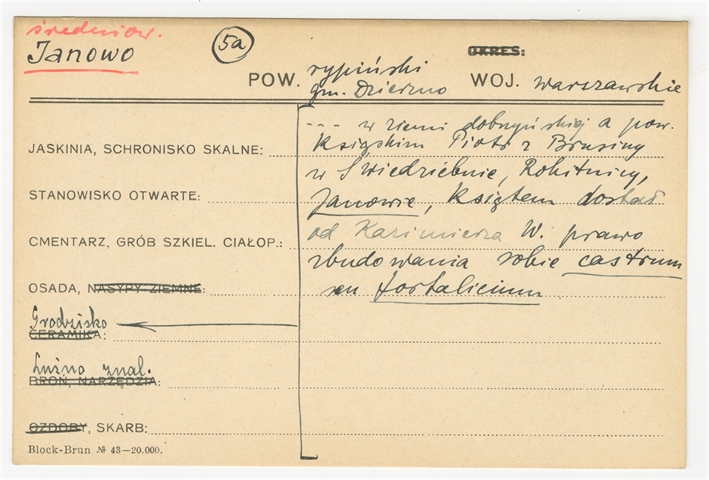 średniow.
Janowo
5a
OKRES:
POW. rypiński
gm. Dzierzno
WOJ. warszawskie
--- w ziemi dobrzyńskiej a pow.
JASKINIA, SCHRONISKO SKALNE: książskim Piotr z Brusiny
w Swiedziebnie, Rokitnicy,
STANOWISKO OTWARTE: Janowie, książtem dostał
CMENTARZ, GRÓB SZKIEL. CIAŁOP.: od Kazimierza W. prawo
zbudowania sobie castrum
OSADA, NASYPY ZIEMNE: seu fortalicium.
Grodzisko
CERAMIKA:
Luźno znal.
BROŃ, NARZĘDZIA:
OZDOBY, SKARB:
Block-Brun № 43-20.000.